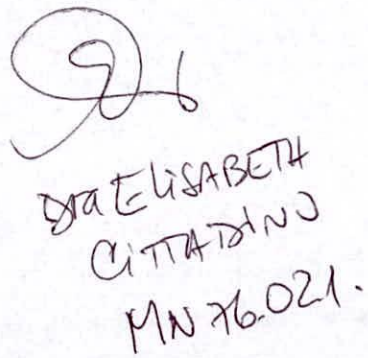 Dra ELISABETH
CITTADINO
MN 76.021.